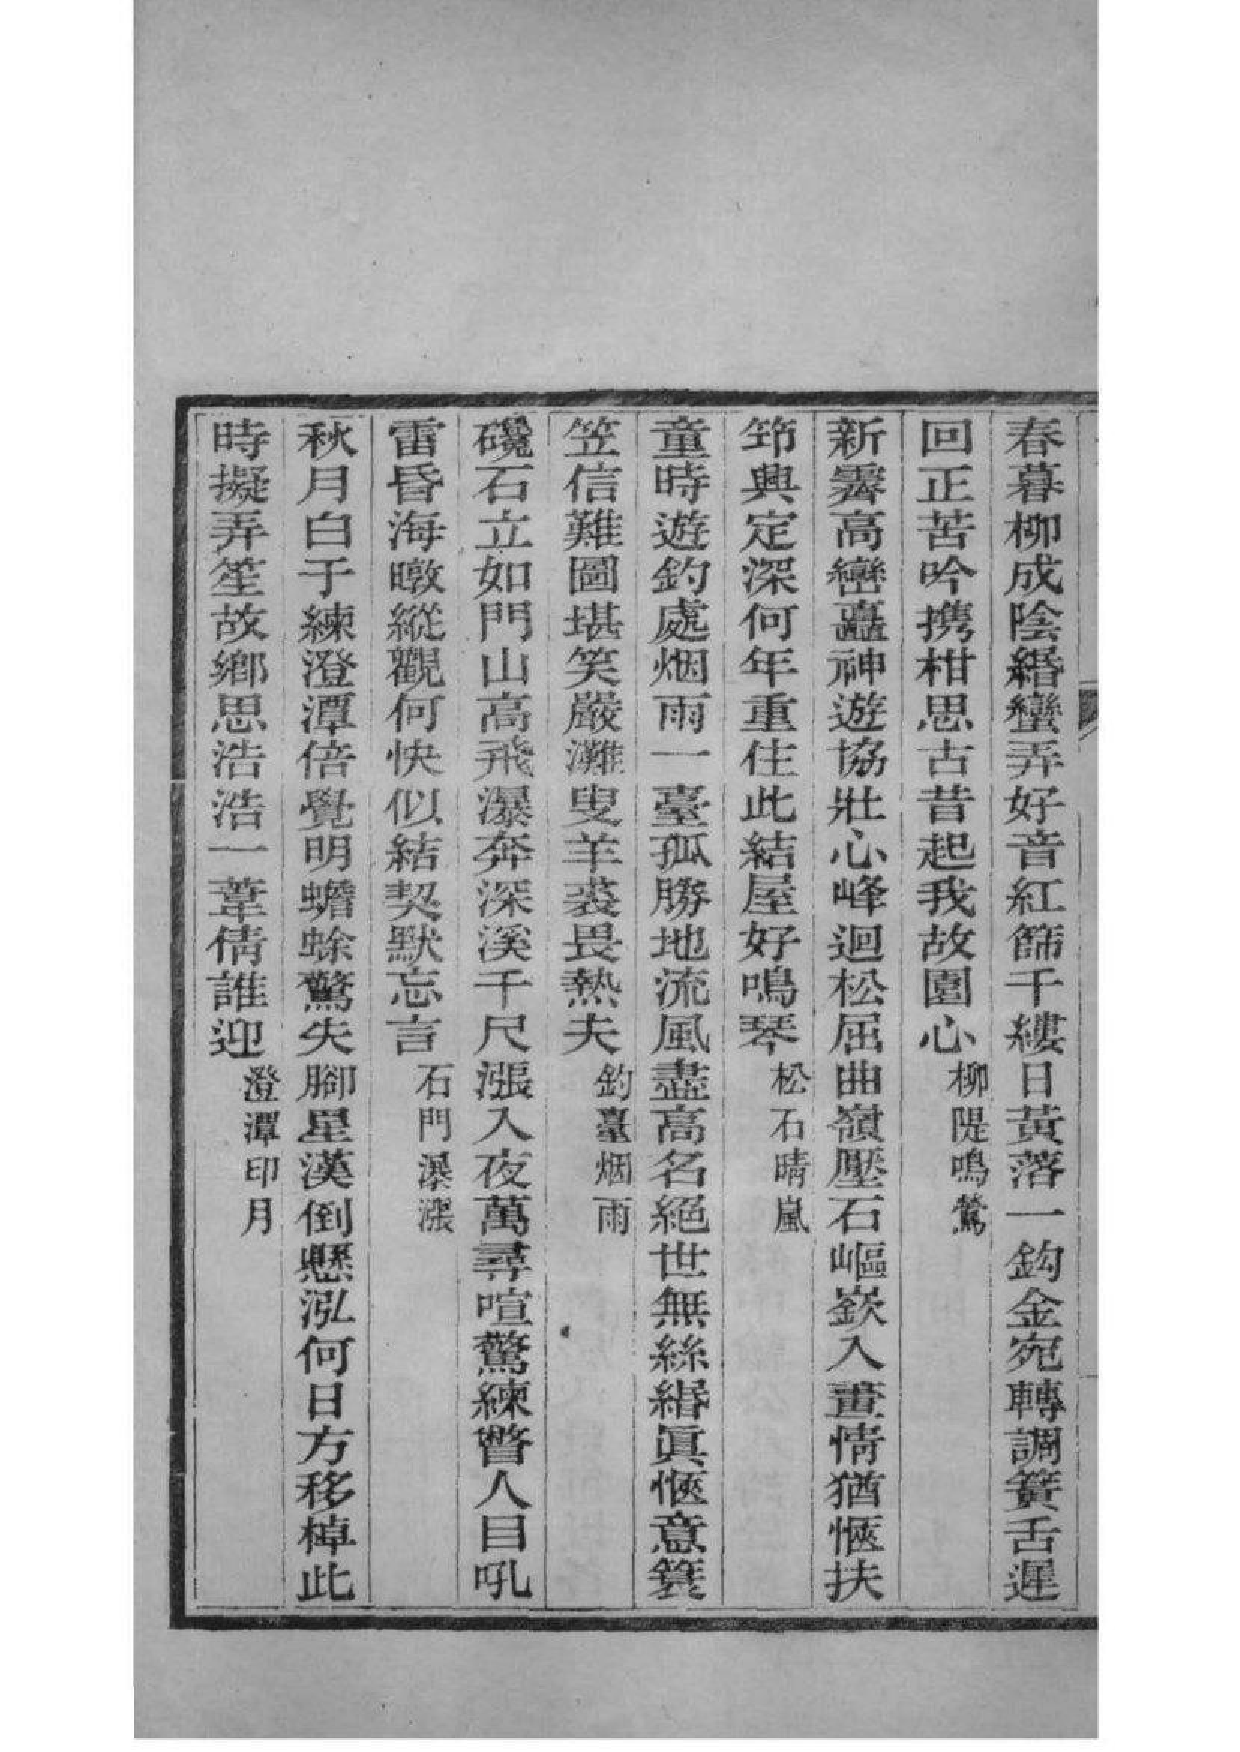 春暮柳成陰緡蠻弄好音紅篩千縷日黃落一鈎金宛轉調簧舌遲
回正苦吟携柑思古昔起我故園心柳隄鳴鶯
新霽高巒矗神遊協壯心峰迴松屈曲嶺壓石嶇嶔入畫情猶愜扶
筇興定深何年重住此結屋好鳴琴松石晴嵐
童時遊釣處烟雨一臺孤勝地流風盡高名絕世無絲緡眞愜意簑
笠信難圖堪笑嚴灘叟羊裘畏熱夫釣臺烟雨
巉石立如門山高飛瀑奔深溪千尺漲入夜萬尋喧驚練瞥人目吼
雷昏海暾縱觀何快似結契默忘言石門瀑漲
秋月白于練澄潭倍覺明蟾蜍驚失腳星漢倒懸泓何日方移棹此
時擬弄笙故鄉思浩浩一葦倩誰迎澄潭印月